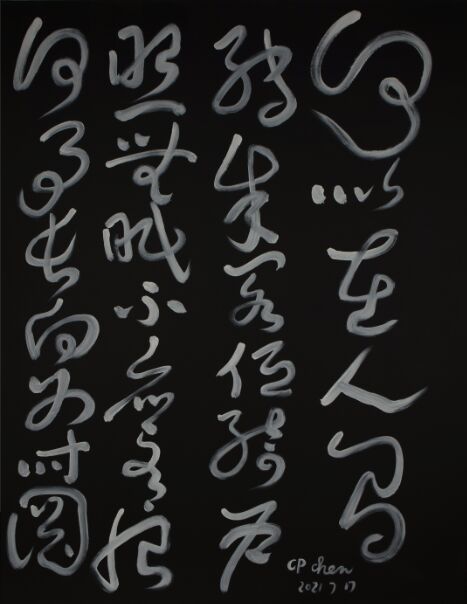 何似在人間
轉朱閣低綺戶
照無眠不應有恨
何事長向別時圓
CP chen
2021 7 17